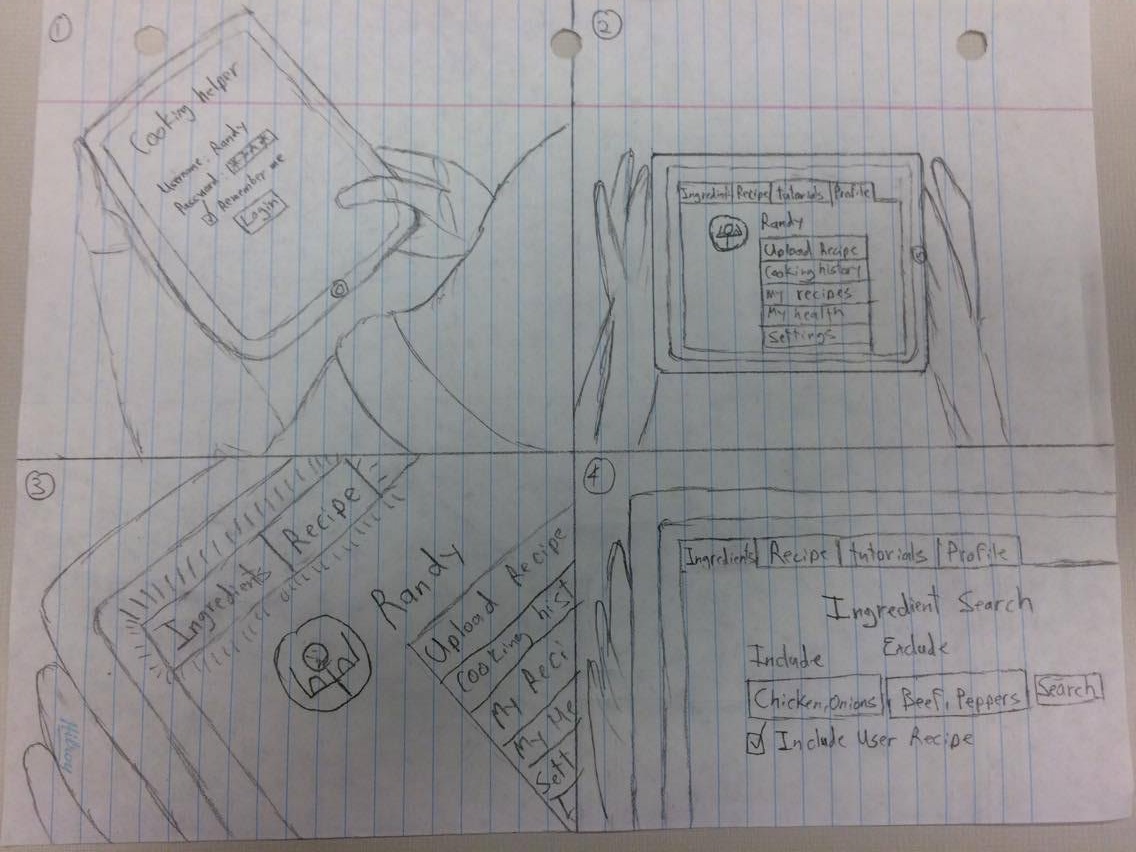 1
Cooking helper
Username: Randy
Password ****
Remember me
Login
2
Ingredients Recipe tutorials Profile
Randy
Upload Recipe
Cooking history
My recipes
My health
Settings
3
Ingredients Recipe
Randy
Upload Recipe
Cooking hist
My Reci
My He
Sett
4
Ingredients Recipe tutorials Profile
Ingredient Search
Include Exclude
Chicken, Onions Beef, Peppers Search
Include User Recipe